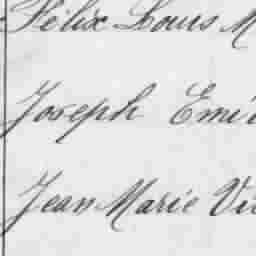 Félix Louis M
Joseph Emi
Jean Marie Vi